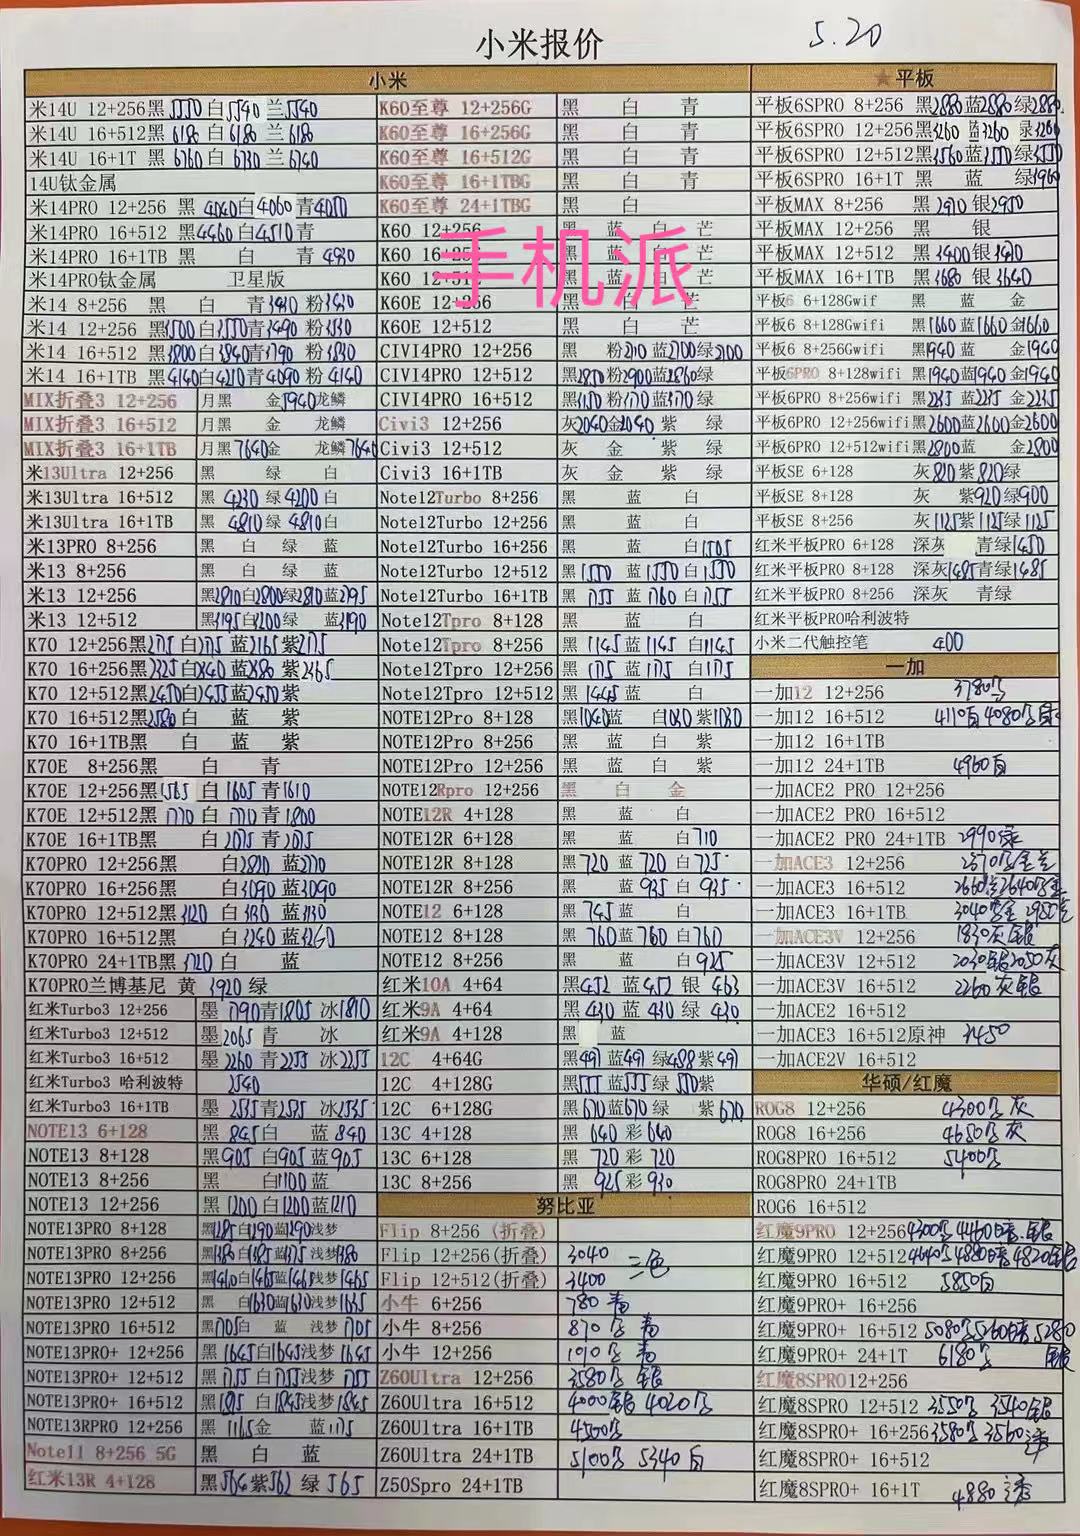 小米报价 5.20
小米
米14U 12+256黑5550白5540兰5540
米14U 16+512黑6180白6180兰6180
米14U 16+1T 黑6760白6730兰6740
14U钛金属
米14PRO 12+256 黑4040白4060青4050
米14PRO 16+512 黑4460白4510青
米14PRO 16+1TB 黑 白 青4930
米14PRO钛金属 卫星版
米14 8+256 黑 白 青3430 粉3430
米14 12+256 黑3500白3550青3490 粉3530
米14 16+512 黑3800白3840青3790 粉3830
米14 16+1TB 黑4140白4210青4090粉4140
MIX折叠3 12+256 月黑 金5940龙鳞
MIX折叠3 16+512 月黑 金 龙鳞
MIX折叠3 16+1TB 月黑7640金 龙鳞7640
米13Ultra 12+256 黑 绿 白
米13Ultra 16+512 黑4230绿4200白
米13Ultra 16+1TB 黑4810绿4810白
米13PRO 8+256 黑 白 绿 蓝
米13 8+256 黑 白 绿 蓝
米13 12+256 黑2810白2800绿2810蓝2795
米13 12+512 黑3195白3200绿 蓝3190
K70 12+256黑2175白2175蓝2165紫2175
K70 16+256黑2325白2340蓝2380紫2365
K70 12+512黑2450白2455蓝2450紫
K70 16+512黑2580白 蓝 紫
K70 16+1TB黑 白 蓝 紫
K70E 8+256黑 白 青
K70E 12+256黑1565白1605青1610
K70E 12+512黑1770白1770青1800
K70E 16+1TB黑 白2075青2075
K70PRO 12+256黑 白2810蓝2770
K70PRO 16+256黑 白3090蓝3090
K70PRO 12+512黑3120白3130蓝3130
K70PRO 16+512黑 白3240蓝3260
K70PRO 24+1TB黑3720白 蓝
K70PRO兰博基尼 黄 3920绿
红米Turbo3 12+256 墨1790青1805冰1810
红米Turbo3 12+512 墨2065青 冰
红米Turbo3 16+512 墨2260青2255冰2255
红米Turbo3 哈利波特 2540
红米Turbo3 16+1TB 墨2535青2535冰2535
NOTE13 6+128 黑845白 蓝840
NOTE13 8+128 黑905白905蓝905
NOTE13 8+256 黑 白1100蓝
NOTE13 12+256 黑1200白1200蓝1210
NOTE13PRO 8+128 黑1285白1290蓝1290浅梦
NOTE13PRO 8+256 黑1380白1385蓝1375浅梦1380
NOTE13PRO 12+256 黑1460白1465蓝1465浅梦1465
NOTE13PRO 12+512 黑 白1630蓝1630浅梦1635
NOTE13PRO 16+512 黑1705白 蓝 浅梦1705
NOTE13PRO+ 12+256 黑1645白1645浅梦1645
NOTE13PRO+ 12+512 黑1755白1755浅梦1755
NOTE13PRO+ 16+512 黑1895白1845浅梦1845
NOTE13RPRO 12+256 黑1165金 蓝1175
Note11 8+256 5G 黑 白 蓝
红米13R 4+128 黑564紫562绿565
K60至尊 12+256G 黑 白 青
K60至尊 16+256G 黑 白 青
K60至尊 16+512G 黑 白 青
K60至尊 16+1TBG 黑 白 青
K60至尊 24+1TBG 黑 白
手机派
K60 12+256 黑 蓝 白 芒
K60 16+256 黑 蓝 白 芒
K60 12+512 黑 蓝 白 芒
K60E 12+256 黑 白 芒
K60E 12+512 黑 白 芒
CIVI4PRO 12+256 黑 粉2110蓝2100绿2100
CIVI4PRO 12+512 黑2850粉2900蓝2860绿
CIVI4PRO 16+512 黑3150粉3170蓝3170绿
Civi3 12+256 灰2040金2040紫 绿
Civi3 12+512 灰 金 紫 绿
Civi3 16+1TB 灰 金 紫 绿
Note12Turbo 8+256 黑 蓝 白
Note12Turbo 12+256 黑 蓝 白
Note12Turbo 16+256 黑 蓝 白1505
Note12Turbo 12+512 黑1550蓝1550白1550
Note12Turbo 16+1TB 黑1755蓝1760白1755
Note12Tpro 8+128 黑 蓝 白
Note12Tpro 8+256 黑1145蓝1145白1145
Note12Tpro 12+256 黑1175蓝1175白1175
Note12Tpro 12+512 黑1445蓝 白
NOTE12Pro 8+128 黑1040蓝 白1030紫1030
NOTE12Pro 8+256 黑 蓝 白 紫
NOTE12Pro 12+256 黑 蓝 白 紫
NOTE12Rpro 12+256 黑 白 金
NOTE12R 4+128 黑 蓝 白
NOTE12R 6+128 黑 蓝 白710
NOTE12R 8+128 黑720蓝720白725
NOTE12R 8+256 黑 蓝935白935
NOTE12 6+128 黑745蓝 白
NOTE12 8+128 黑760蓝760白760
NOTE12 8+256 黑 蓝 白925
红米10A 4+64 黑452蓝452银463
红米9A 4+64 黑430蓝430绿430
红米9A 4+128 黑 蓝
12C 4+64G 黑491蓝491绿488紫491
12C 4+128G 黑555蓝555绿550紫
12C 6+128G 黑670蓝670绿 紫670
13C 4+128 黑640彩640
13C 6+128 黑720彩720
13C 8+256 黑925彩930
努比亚
Flip 8+256(折叠)
Flip 12+256(折叠) 3040 三色
Flip 12+512(折叠) 3400
小牛 6+256 780青
小牛 8+256 870黑 青
小牛 12+256 1010黑 青
Z60Ultra 12+256 3580黑 银
Z60Ultra 16+512 4000银 4020黑
Z60Ultra 16+1TB 4500黑
Z60Ultra 24+1TB 5100黑 5340白
Z50Spro 24+1TB
★平板
平板6SPRO 8+256 黑2880蓝2880绿2880
平板6SPRO 12+256黑3260蓝3260绿3260
平板6SPRO 12+512黑3560蓝3550绿3550
平板6SPRO 16+1T 黑 蓝 绿3960
平板MAX 8+256 黑2910银2950
平板MAX 12+256 黑 银
平板MAX 12+512 黑3400银3410
平板MAX 16+1TB 黑3680银3640
平板6 6+128Gwif 黑 蓝 金
平板6 8+128Gwifi 黑1660蓝1660金1660
平板6 8+256Gwifi 黑1940蓝 金1940
平板6PRO 8+128wifi 黑1940蓝1940金1940
平板6PRO 8+256wifi 黑2235蓝2235金2235
平板6PRO 12+256wifi黑2600蓝2600金2600
平板6PRO 12+512wifi黑2800蓝 金2800
平板SE 6+128 灰820紫820绿
平板SE 8+128 灰 紫920绿900
平板SE 8+256 灰1125紫1125绿1125
红米平板PRO 6+128 深灰 青绿1450
红米平板PRO 8+128 深灰1485青绿1485
红米平板PRO 8+256 深灰 青绿
红米平板PRO哈利波特
小米二代触控笔 400
一加
一加12 12+256 3780黑
一加12 16+512 4110白4080黑绿
一加12 16+1TB
一加12 24+1TB 4960白
一加ACE2 PRO 12+256
一加ACE2 PRO 16+512
一加ACE2 PRO 24+1TB 2990绿
一加ACE3 12+256 2370黑金兰
一加ACE3 16+512 2660兰2640黑金
一加ACE3 16+1TB 3040黑金 2950兰
一加ACE3V 12+256 1830灰银
一加ACE3V 12+512 2030银2050灰
一加ACE3V 16+512 2260灰银
一加ACE2 16+512
一加ACE3 16+512原神 3450
一加ACE2V 16+512
华硕/红魔
ROG8 12+256 4300黑灰
ROG8 16+256 4650黑灰
ROG8PRO 16+512 5400黑
ROG8PRO 24+1TB
ROG6 16+512
红魔9PRO 12+256 4300黑 4460暗.银
红魔9PRO 12+512 4640黑4880暗4820银
红魔9PRO 16+512 5850白
红魔9PRO+ 16+256
红魔9PRO+ 16+512 5080黑5360暗5280银
红魔9PRO+ 24+1T 6180黑
红魔8SPRO12+256
红魔8SPRO 12+512 3550黑 3540银
红魔8SPRO+ 16+256 3580黑 3560透
红魔8SPRO+ 16+512
红魔8SPRO+ 16+1T 4880透